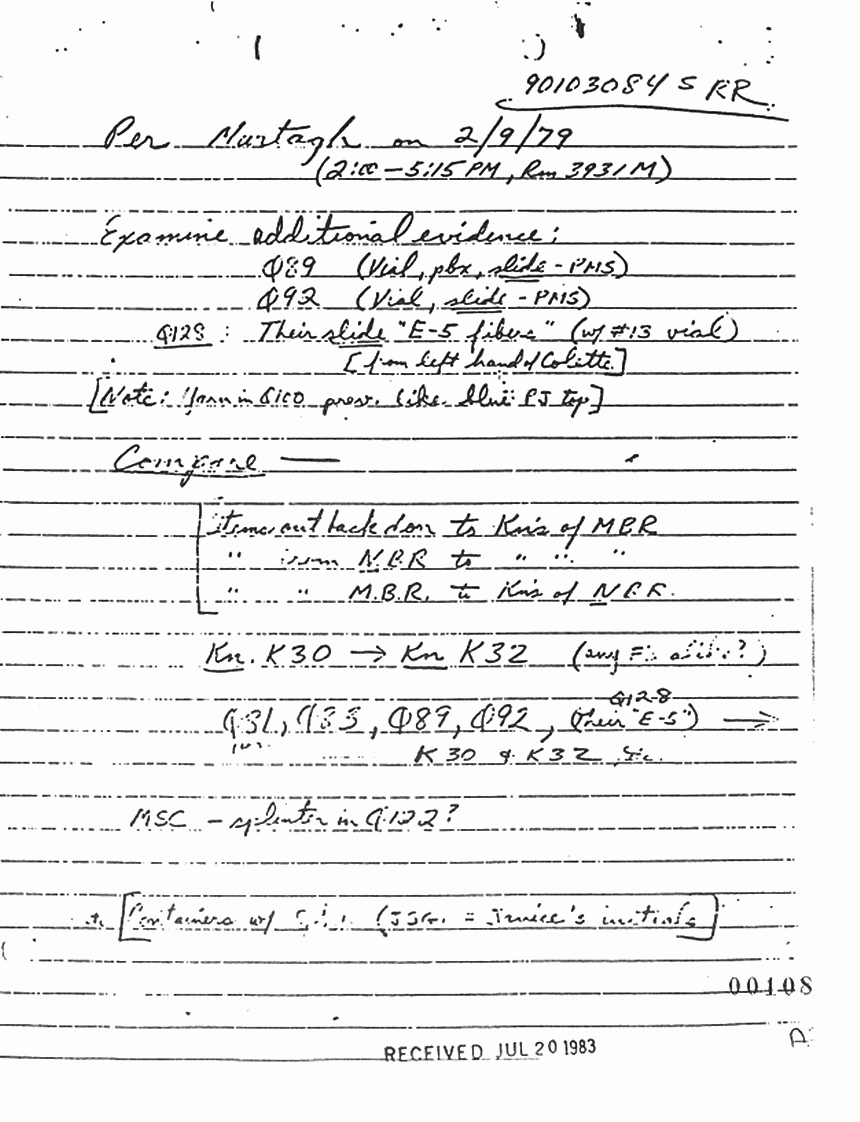 90103084 S RR
Per Murtagh on 2/9/79
(2:00 - 5:15 PM, Rm 3931 M)
Examine additional evidence:
Q89 (Vial, pbx, slide - PMS)
Q92 (Vial, slide - PMS)
Q128 : Their slide "E-5 fibers" (w/ #13 vial)
[from left hand of Colette]
[Note: Yarn in Q100 prev. like blue PJ top]
Compare —
items out back door to Kn's of MBR
" from N.B.R to " " "
" " M.B.R. to Kn's of N.B.R.
Kn. K30 → Kn K32 (any alike?)
Q128
Q81, Q83, Q89, Q92, (Their "E-5") →
K30 & K32
MSC - splinter in Q122?
[Containers w/ (JSG. = Janice's initials]
00108
RECEIVED JUL 20 1983